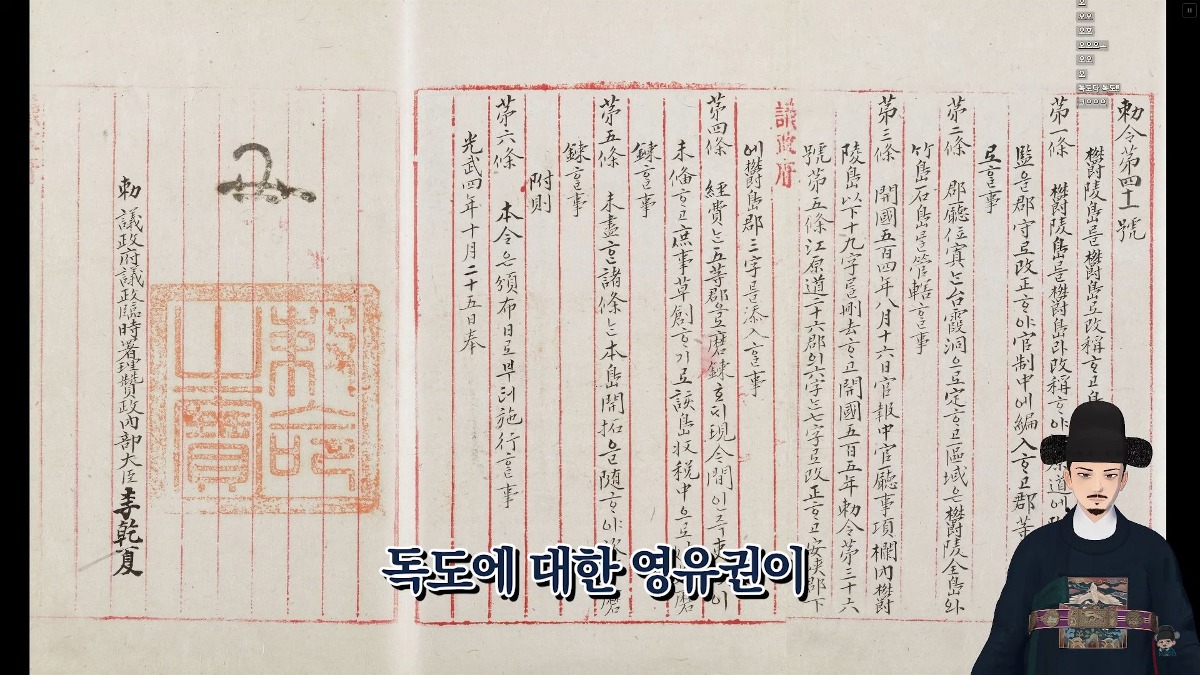 勅令第四十一號
欝陵島를欝島로改稱ᄒᆞ고島
第一條 欝陵島를欝島라改稱ᄒᆞ야 原道에
監을郡守로改正ᄒᆞ야官制中에編入ᄒᆞ고郡等
로ᄒᆞᆯ事
第二條 郡廳位寘ᄂᆞᆫ台霞洞으로定ᄒᆞ고區域은欝陵全島와
竹島石島를管轄ᄒᆞᆯ事
第三條 開國五百四年八月十六日官報中官廳事項欄內欝
陵島以下十九字를刪去ᄒᆞ고開國五百五年勅令第三十六
號第五條江原道二十六郡의六字ᄂᆞᆫ七字로改正ᄒᆞ고安峽郡下
議政府
에欝島郡三字를添入ᄒᆞᆯ事
第四條 經費ᄂᆞᆫ五等郡으로磨鍊호ᄃᆡ現今間인즉吏 이
未備ᄒᆞ고庶事草創ᄒᆞ기로該島收稅中으로 磨
鍊ᄒᆞᆯ事
第五條 未盡ᄒᆞᆫ諸條ᄂᆞᆫ本島開拓을隨ᄒᆞ야次 磨
鍊ᄒᆞᆯ事
附則
第六條 本令은頒布日로부터施行ᄒᆞᆯ事
光武四年十月二十五日奉
勅 議政府議政臨時署理贊政內部大臣李乾夏
勅命之寶
독도에 대한 영유권이